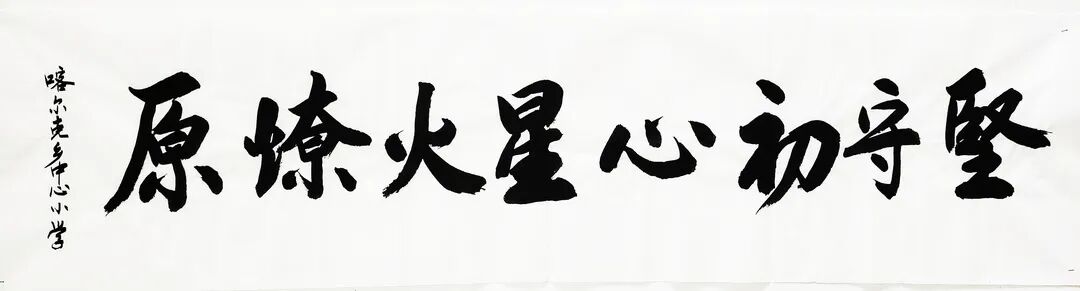 堅守初心星火燎原
喀尔克乡中心小学